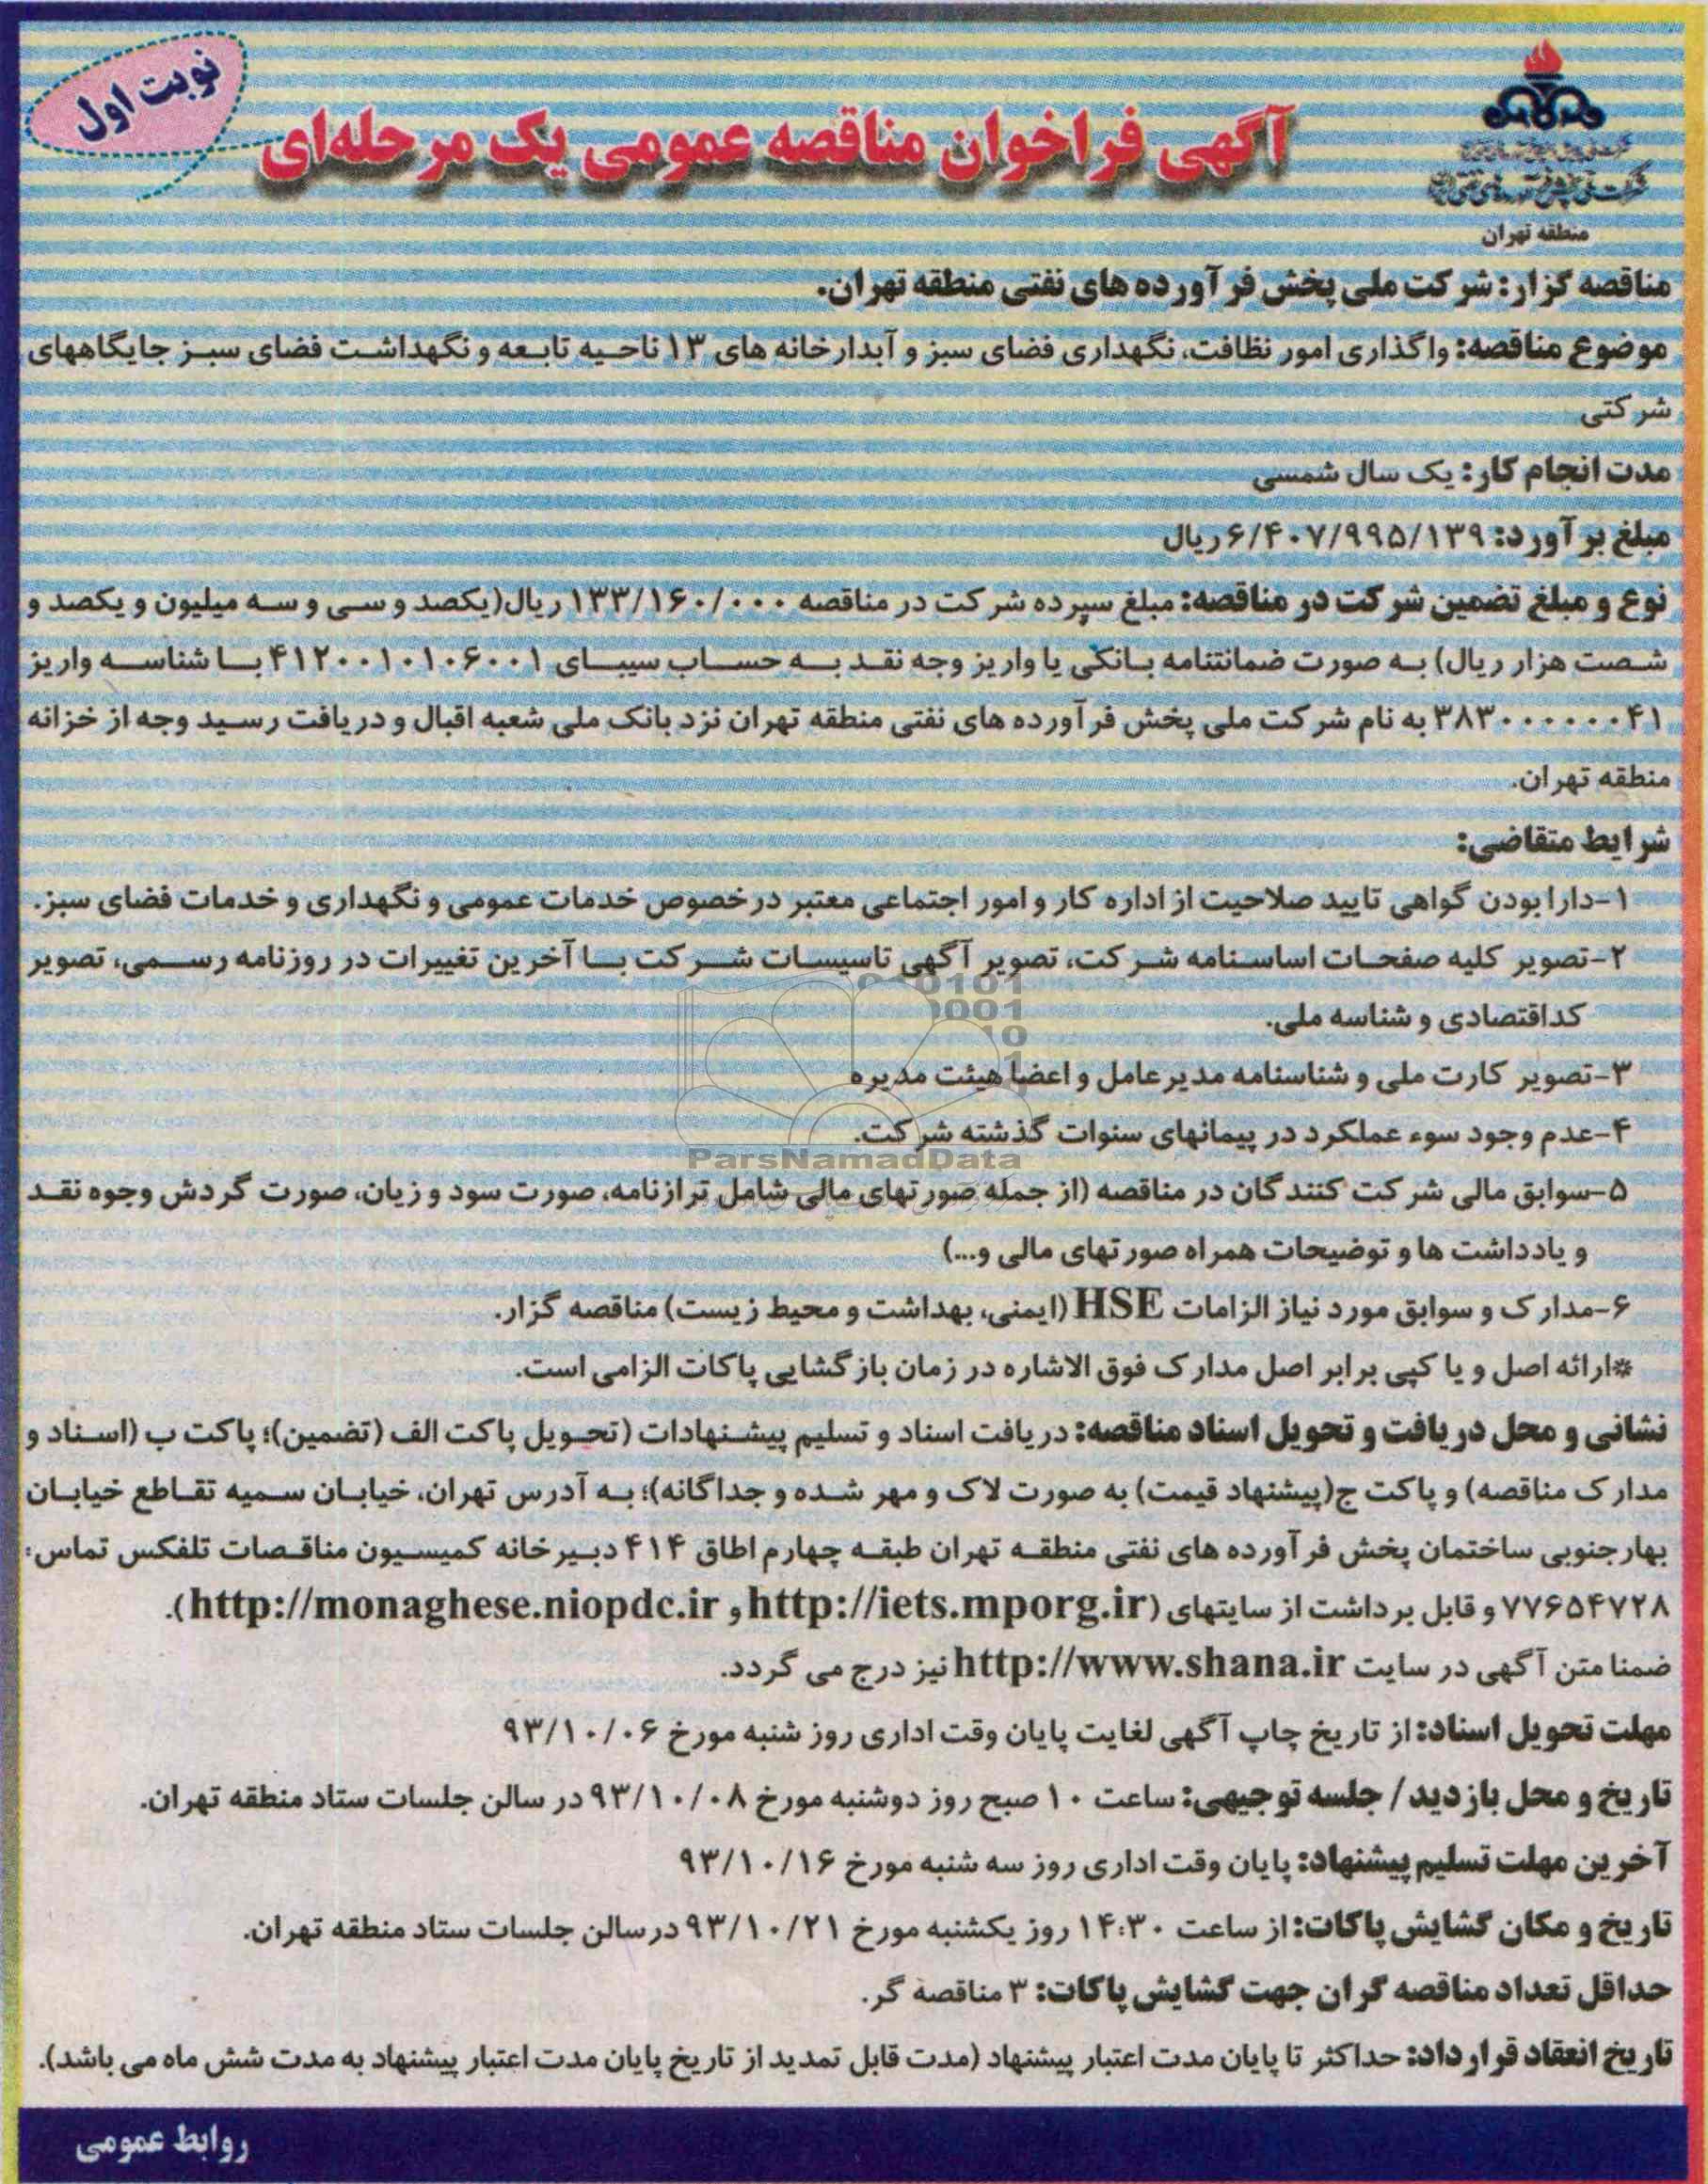 نوبت اول
آگهی فراخوان مناقصه عمومی یک مرحله‌ای
منطقه تهران
مناقصه گزار: شرکت ملی پخش فرآورده های نفتی منطقه تهران.
موضوع مناقصه: واگذاری امور نظافت، نگهداری فضای سبز و آبدارخانه های ۱۳ ناحیه تابعه و نگهداشت فضای سبز جایگاههای
شرکتی
مدت انجام کار: یک سال شمسی
مبلغ برآورد: ۶/۴۰۷/۹۹۵/۱۳۹ ریال
نوع و مبلغ تضمین شرکت در مناقصه: مبلغ سپرده شرکت در مناقصه ۱۳۳/۱۶۰/۰۰۰ ریال(یکصد و سی و سه میلیون و یکصد و
شصت هزار ریال) به صورت ضمانتنامه بانکی یا واریز وجه نقد به حساب سیبای ۴۱۲۰۰۱۰۱۰۶۰۰۱ با شناسه واریز
۳۸۳۰۰۰۰۰۰۴۱ به نام شرکت ملی پخش فرآورده های نفتی منطقه تهران نزد بانک ملی شعبه اقبال و دریافت رسید وجه از خزانه
منطقه تهران.
شرایط متقاضی:
۱-دارا بودن گواهی تایید صلاحیت از اداره کار و امور اجتماعی معتبر درخصوص خدمات عمومی و نگهداری و خدمات فضای سبز.
۲-تصویر کلیه صفحات اساسنامه شرکت، تصویر آگهی تاسیسات شرکت با آخرین تغییرات در روزنامه رسمی، تصویر
کداقتصادی و شناسه ملی.
۳-تصویر کارت ملی و شناسنامه مدیرعامل و اعضا هیئت مدیره
۴-عدم وجود سوء عملکرد در پیمانهای سنوات گذشته شرکت.
ParsNamadData
۵-سوابق مالی شرکت کنندگان در مناقصه (از جمله صورتهای مالی شامل ترازنامه، صورت سود و زیان، صورت گردش وجوه نقد
و یادداشت ها و توضیحات همراه صورتهای مالی و...)
۶-مدارک و سوابق مورد نیاز الزامات HSE (ایمنی، بهداشت و محیط زیست) مناقصه گزار.
*ارائه اصل و یا کپی برابر اصل مدارک فوق الاشاره در زمان بازگشایی پاکات الزامی است.
نشانی و محل دریافت و تحویل اسناد مناقصه: دریافت اسناد و تسلیم پیشنهادات (تحویل پاکت الف (تضمین)؛ پاکت ب (اسناد و
مدارک مناقصه) و پاکت ج(پیشنهاد قیمت) به صورت لاک و مهر شده و جداگانه)؛ به آدرس تهران، خیابان سمیه تقاطع خیابان
بهارجنوبی ساختمان پخش فرآورده های نفتی منطقه تهران طبقه چهارم اطاق ۴۱۴ دبیرخانه کمیسیون مناقصات تلفکس تماس:
۷۷۶۵۴۷۲۸ و قابل برداشت از سایتهای (http://iets.mporg.ir و http://monaghese.niopdc.ir).
ضمنا متن آگهی در سایت http://www.shana.ir نیز درج می گردد.
مهلت تحویل اسناد: از تاریخ چاپ آگهی لغایت پایان وقت اداری روز شنبه مورخ ۹۳/۱۰/۰۶
تاریخ و محل بازدید / جلسه توجیهی: ساعت ۱۰ صبح روز دوشنبه مورخ ۹۳/۱۰/۰۸ در سالن جلسات ستاد منطقه تهران.
آخرین مهلت تسلیم پیشنهاد: پایان وقت اداری روز سه شنبه مورخ ۹۳/۱۰/۱۶
تاریخ و مکان گشایش پاکات: از ساعت ۱۴:۳۰ روز یکشنبه مورخ ۹۳/۱۰/۲۱ درسالن جلسات ستاد منطقه تهران.
حداقل تعداد مناقصه گران جهت گشایش پاکات: ۳ مناقصه گر.
تاریخ انعقاد قرارداد: حداکثر تا پایان مدت اعتبار پیشنهاد (مدت قابل تمدید از تاریخ پایان مدت اعتبار پیشنهاد به مدت شش ماه می باشد).
روابط عمومی